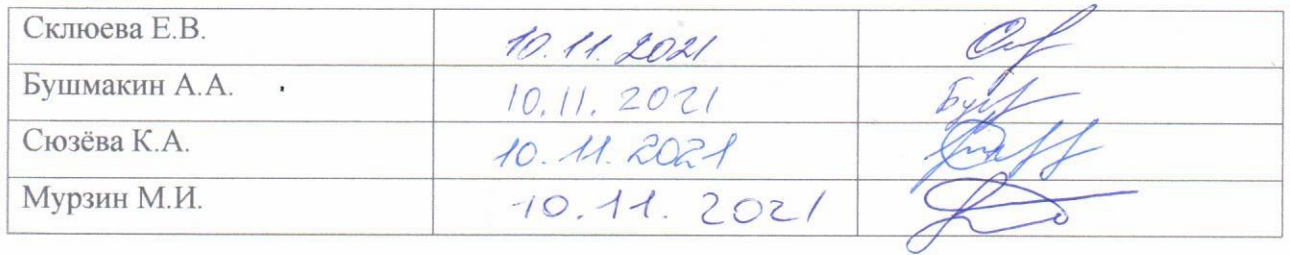 Склюева Е.В. 10.11.2021
Бушмакин А.А. 10.11.2021
Сюзёва К.А. 10.11.2021
Мурзин М.И. 10.11.2021